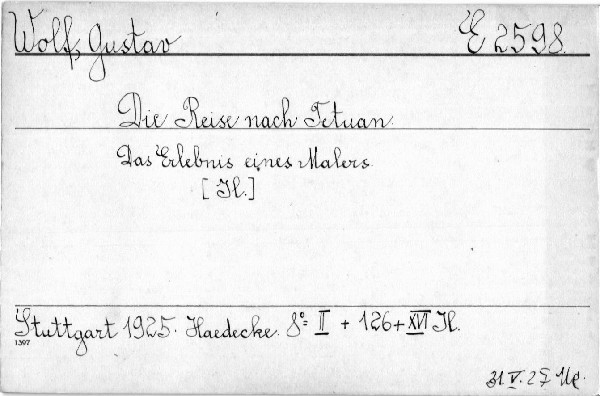 Wolf, Gustav E 2598.
Die Reise nach Tetuan.
Das Erlebnis eines Malers.
[Jl.]
Stuttgart 1925. Haedecke. 8°= II + 126 + XVI Jl.
1397
31. V. 27